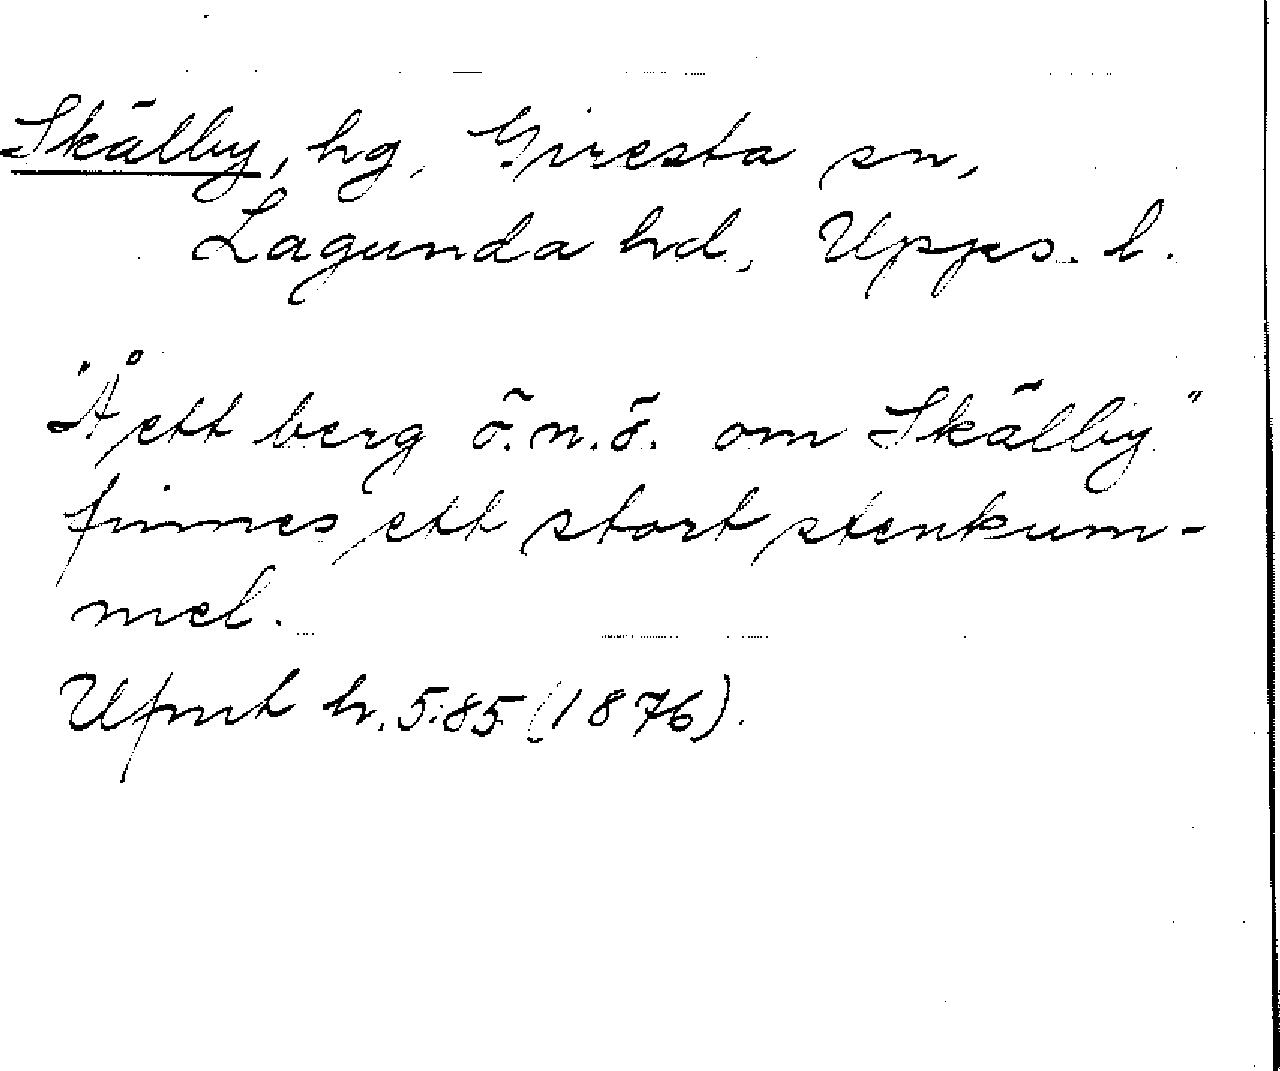 Skälby, hg, Giresta sn,
Lagunda hd, Upps. l.
"Å ett berg ö.n.ö. om Skälby"
finnes ett stort stenkum-
mel.
Ufmt h. 5:85 (1876).